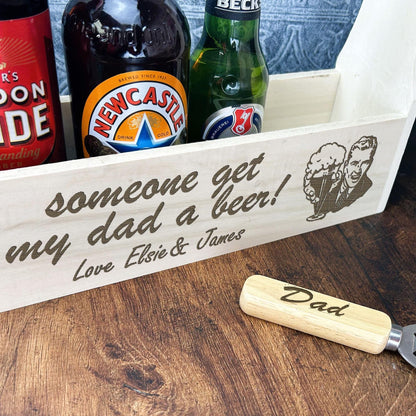 BECK
'S
DON
IDE
standing
BREWED SINCE 1927
NEWCASTLE
DRINK COLD
someone get
my dad a beer!
Love Elsie & James
Dad